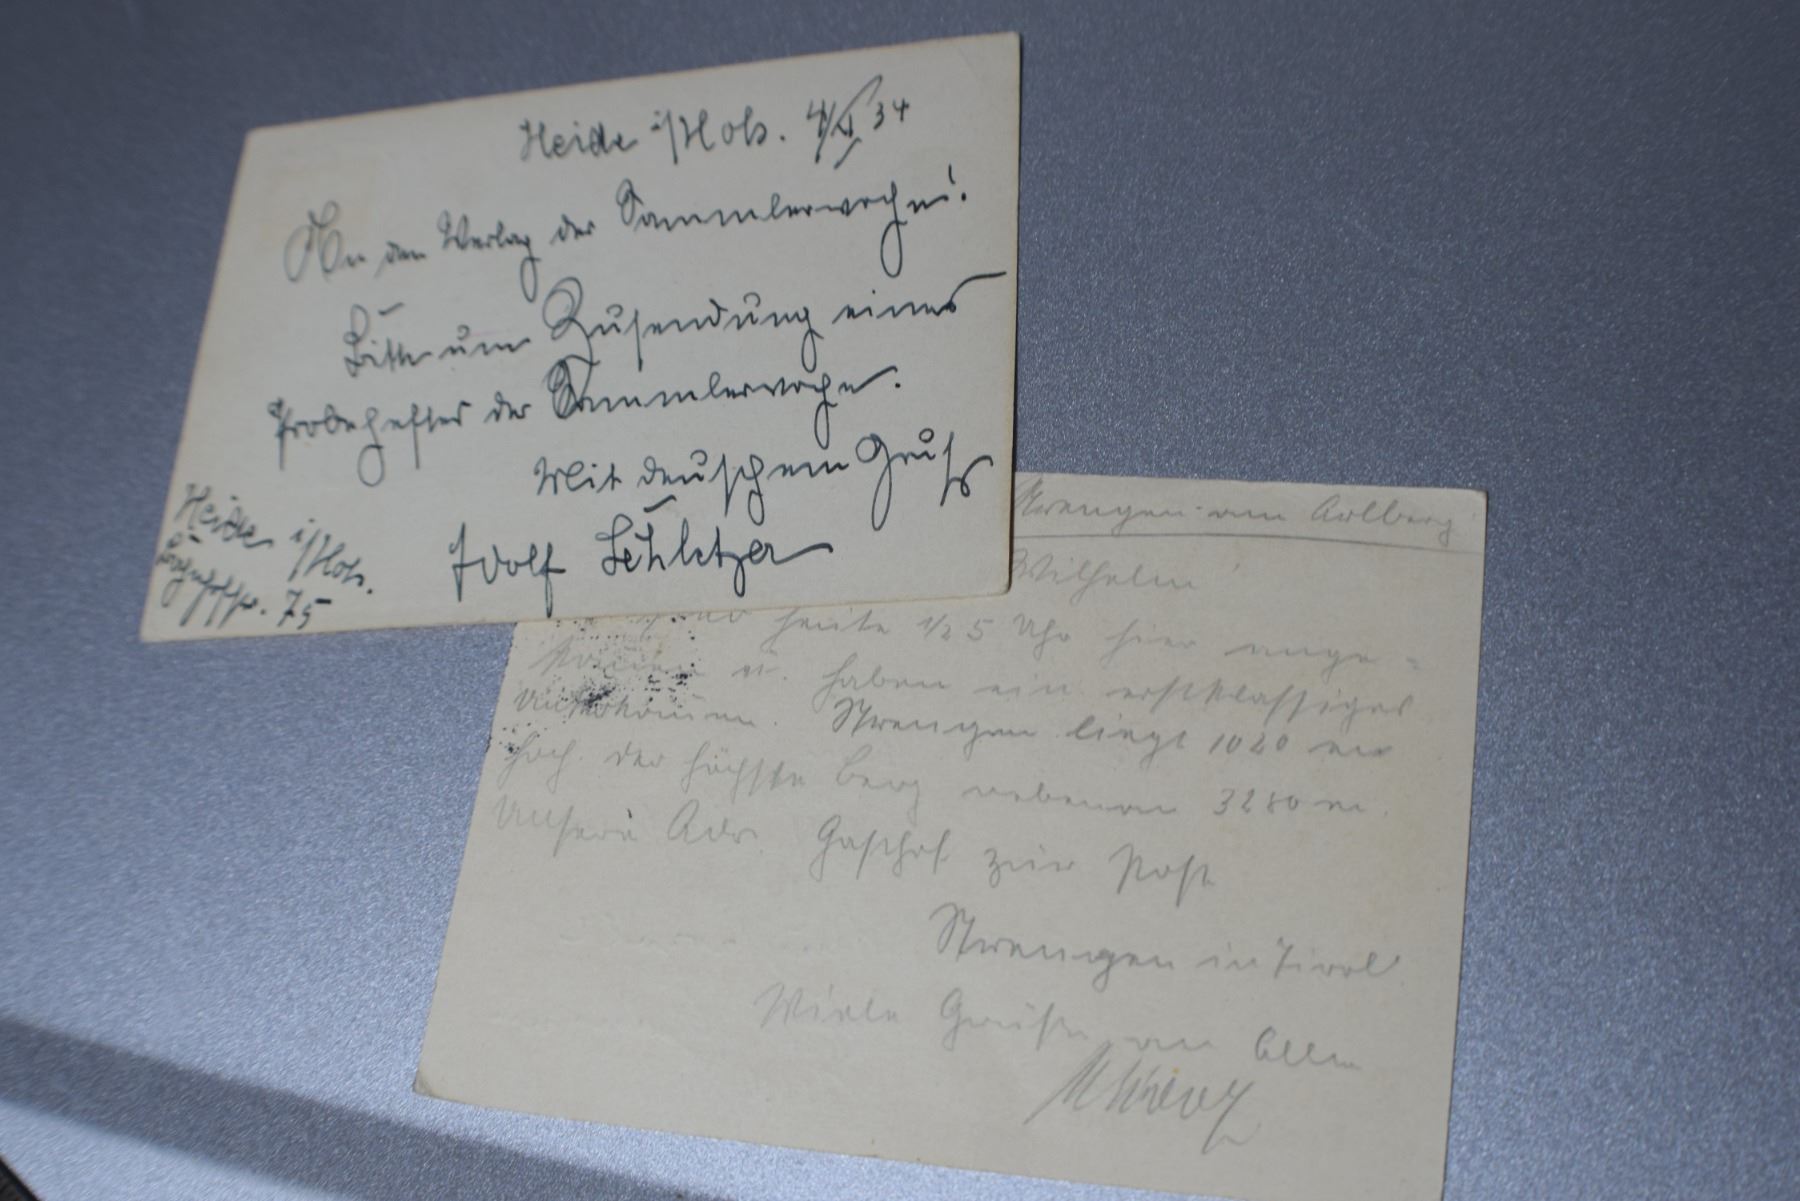 Heide i/Hols. 4/XI 34
An den Verlag der Sammlerwoche!
Bitte um Zusendung eines
Probeheftes der Sammlerwoche.
Mit deuschem Gruß
Adolf
Heide i/Hols.
75
Strengen am Arlberg
Wilhelm
heute 1/2 5 Uhr hier ange=
kommen u. haben ein erstklassiges
Unterkommen. Strengen liegt 1020 m
hoch. der höchste Berg nebenan 3280 m.
Unsere Adr. Gasthof zur Post
Strengen in Tirol
Viele Grüße an Alle